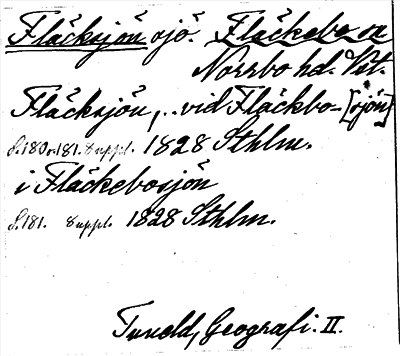 Fläcksjön sjö. Fläckebo sn
Norrbo hd. Vst.
Fläcksjön,.. vid Fläckbo-[sjön]
S.180o.181. Suppl. 1828 Sthlm.
i Fläckebosjön
S.181. Suppl. 1828 Sthlm.
Tuneld, Geografi. II.